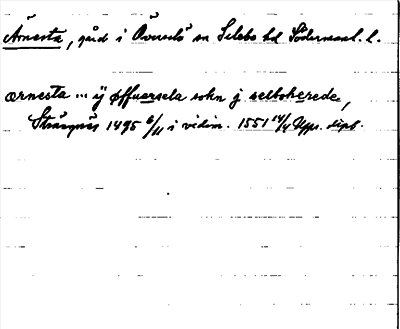 Årnesta, gård i Överselö sn Selebo hd Södermanl. l.
ærnesta ... ÿ øffuersela sokn j seleboherede,
Strängnäs 1495 6/11 i vidim. 1551 14/4 Upps. dipl.